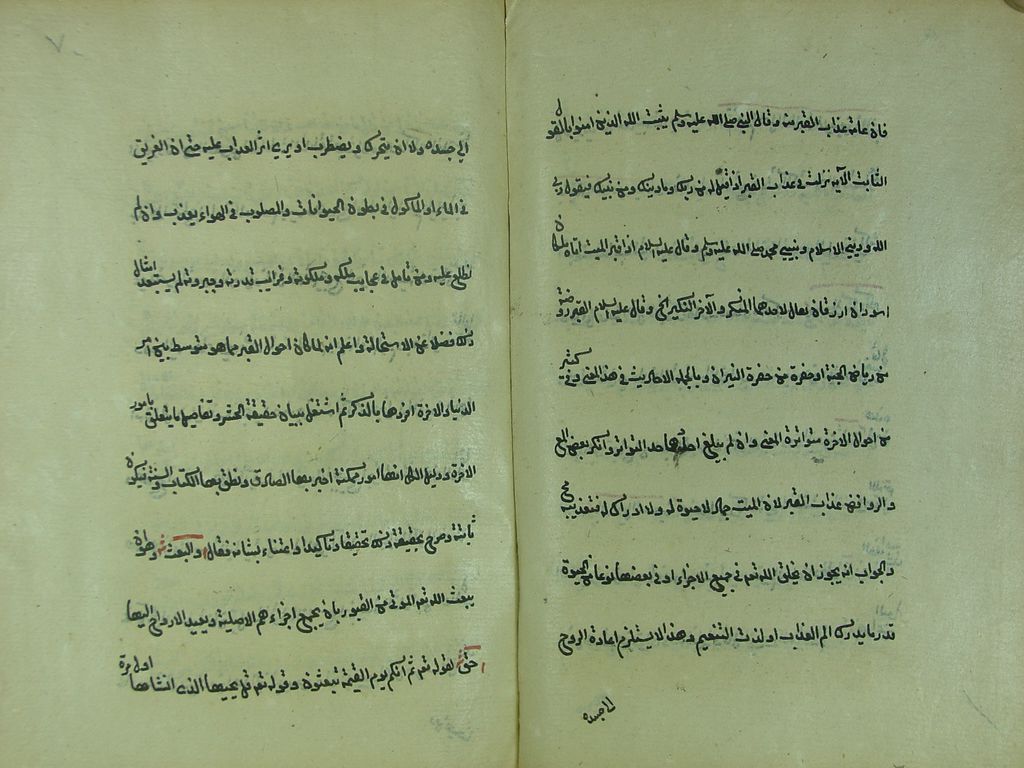 فان عامة عذاب القبر منه وقال النبي صلى الله عليه وسلم يثبت الله الذين امنوا بالقول
الثابت الآية نزلت في عذاب القبر اذا قيل له من ربك وما دينك ومن نبيك فيقول ربي
الله وديني الاسلام ونبيي محمد صلى الله عليه وسلم وقال عليه السلام اذا قبر الميت اتاه ملكان
اسودان ازرقان يقال لاحدهما المنكر والآخر النكير الخ وقال عليه السلام القبر روضة
من رياض الجنة او حفرة من حفرة النيران وبالجملة الاحاديث في هذا المعنى وفي كثير
من احوال الاخرة متواترة المعنى وان لم يبلغ احادها حد التواتر وانكر بعض المع
والروافض عذاب القبر لان الميت جماد لا حيوة له ولا ادراك له فتعذيبه مح
والجواب انه يجوز ان يخلق الله تعه في جميع الاجزاء او في بعضها نوعا من الحيوة
قدر ما يدرك الم العذاب او لذت التنعيم وهذا لا يستلزم اعادة الروح
الى جسده
٧
الى جسده ولا ان يتحرك ويضطرب او يرى اثر العذاب عليه حتى ان الغريق
في الماء او المأكول في بطون الحيوانات والمصلوب في الهواء يعذب وان لم
نطلع عليه ومن تأمل في عجايب ملكه وملكوته وغرايب قدرته وجبروته لم يستبعد امثال
ذلك فضلا عن الاستحالة واعلم انه لما كان احوال القبر مما هو متوسط بين امر
الدنيا والاخرة افردها بالذكر ثم اشتغل ببيان حقيقة الحشر وتفاصيل ما يتعلق بامور
الاخرة ودليل الكل انها امور ممكنة اخبر بها الصادق ونطق بها الكتاب والسنة فيكون
ثابتة وصرح بحقيقة ذلك تحقيقا وتأكيدا واعتناء بشانه فقال والبعث وهو ان
يبعث الله تعه الموتى من القبور بان يجمع اجزاءهم الاصلية ويعيد الارواح اليها
حق لقوله تعه ثم انكم يوم القيمة تبعثون وقوله تعه قل يحييها الذى انشاءها اول مرة